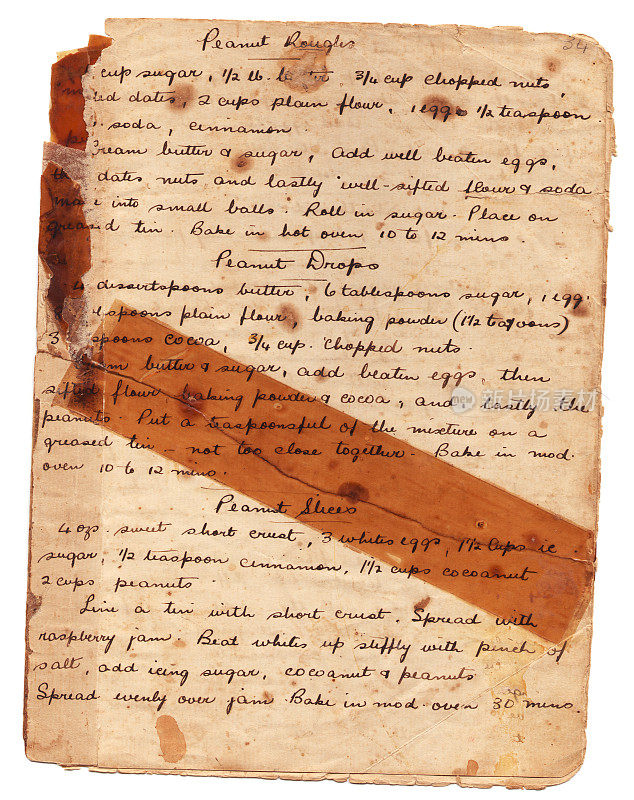 34
Peanut Roughs
cup sugar, 1/2 lb. 3/4 cup chopped nuts,
dates, 2 cups plain flour, 1 egg 1/2 teaspoon
soda, cinnamon.
ream butter & sugar, add well beaten eggs,
dates nuts and lastly well-sifted flour & soda
into small balls. Roll in sugar. Place on
greased tin. Bake in hot oven 10 to 12 mins.
Peanut Drops
dessertspoons butter, 6 tablespoons sugar, 1 egg.
spoons plain flour, baking powder (1 1/2 )
3 spoons cocoa, 3/4 cup chopped nuts.
butter & sugar, add beaten eggs then
sifted flour baking powder & cocoa, and lastly the
peanuts. Put a teaspoonsful of the mixture on a
greased tin - not too close together. Bake in mod.
oven 10 to 12 mins.
Peanut Slices
4 ozs. sweet short crust, 3 whites eggs, 1 1/2 cups ic
sugar, 1/2 teaspoon cinnamon, 1 1/2 cups cocoanut
2 cups peanuts.
Line a tin with short crust. Spread with
raspberry jam. Beat whites up stiffly with pinch of
salt, add icing sugar, cocoanut & peanuts
Spread evenly over jam. Bake in mod. oven 30 mins.